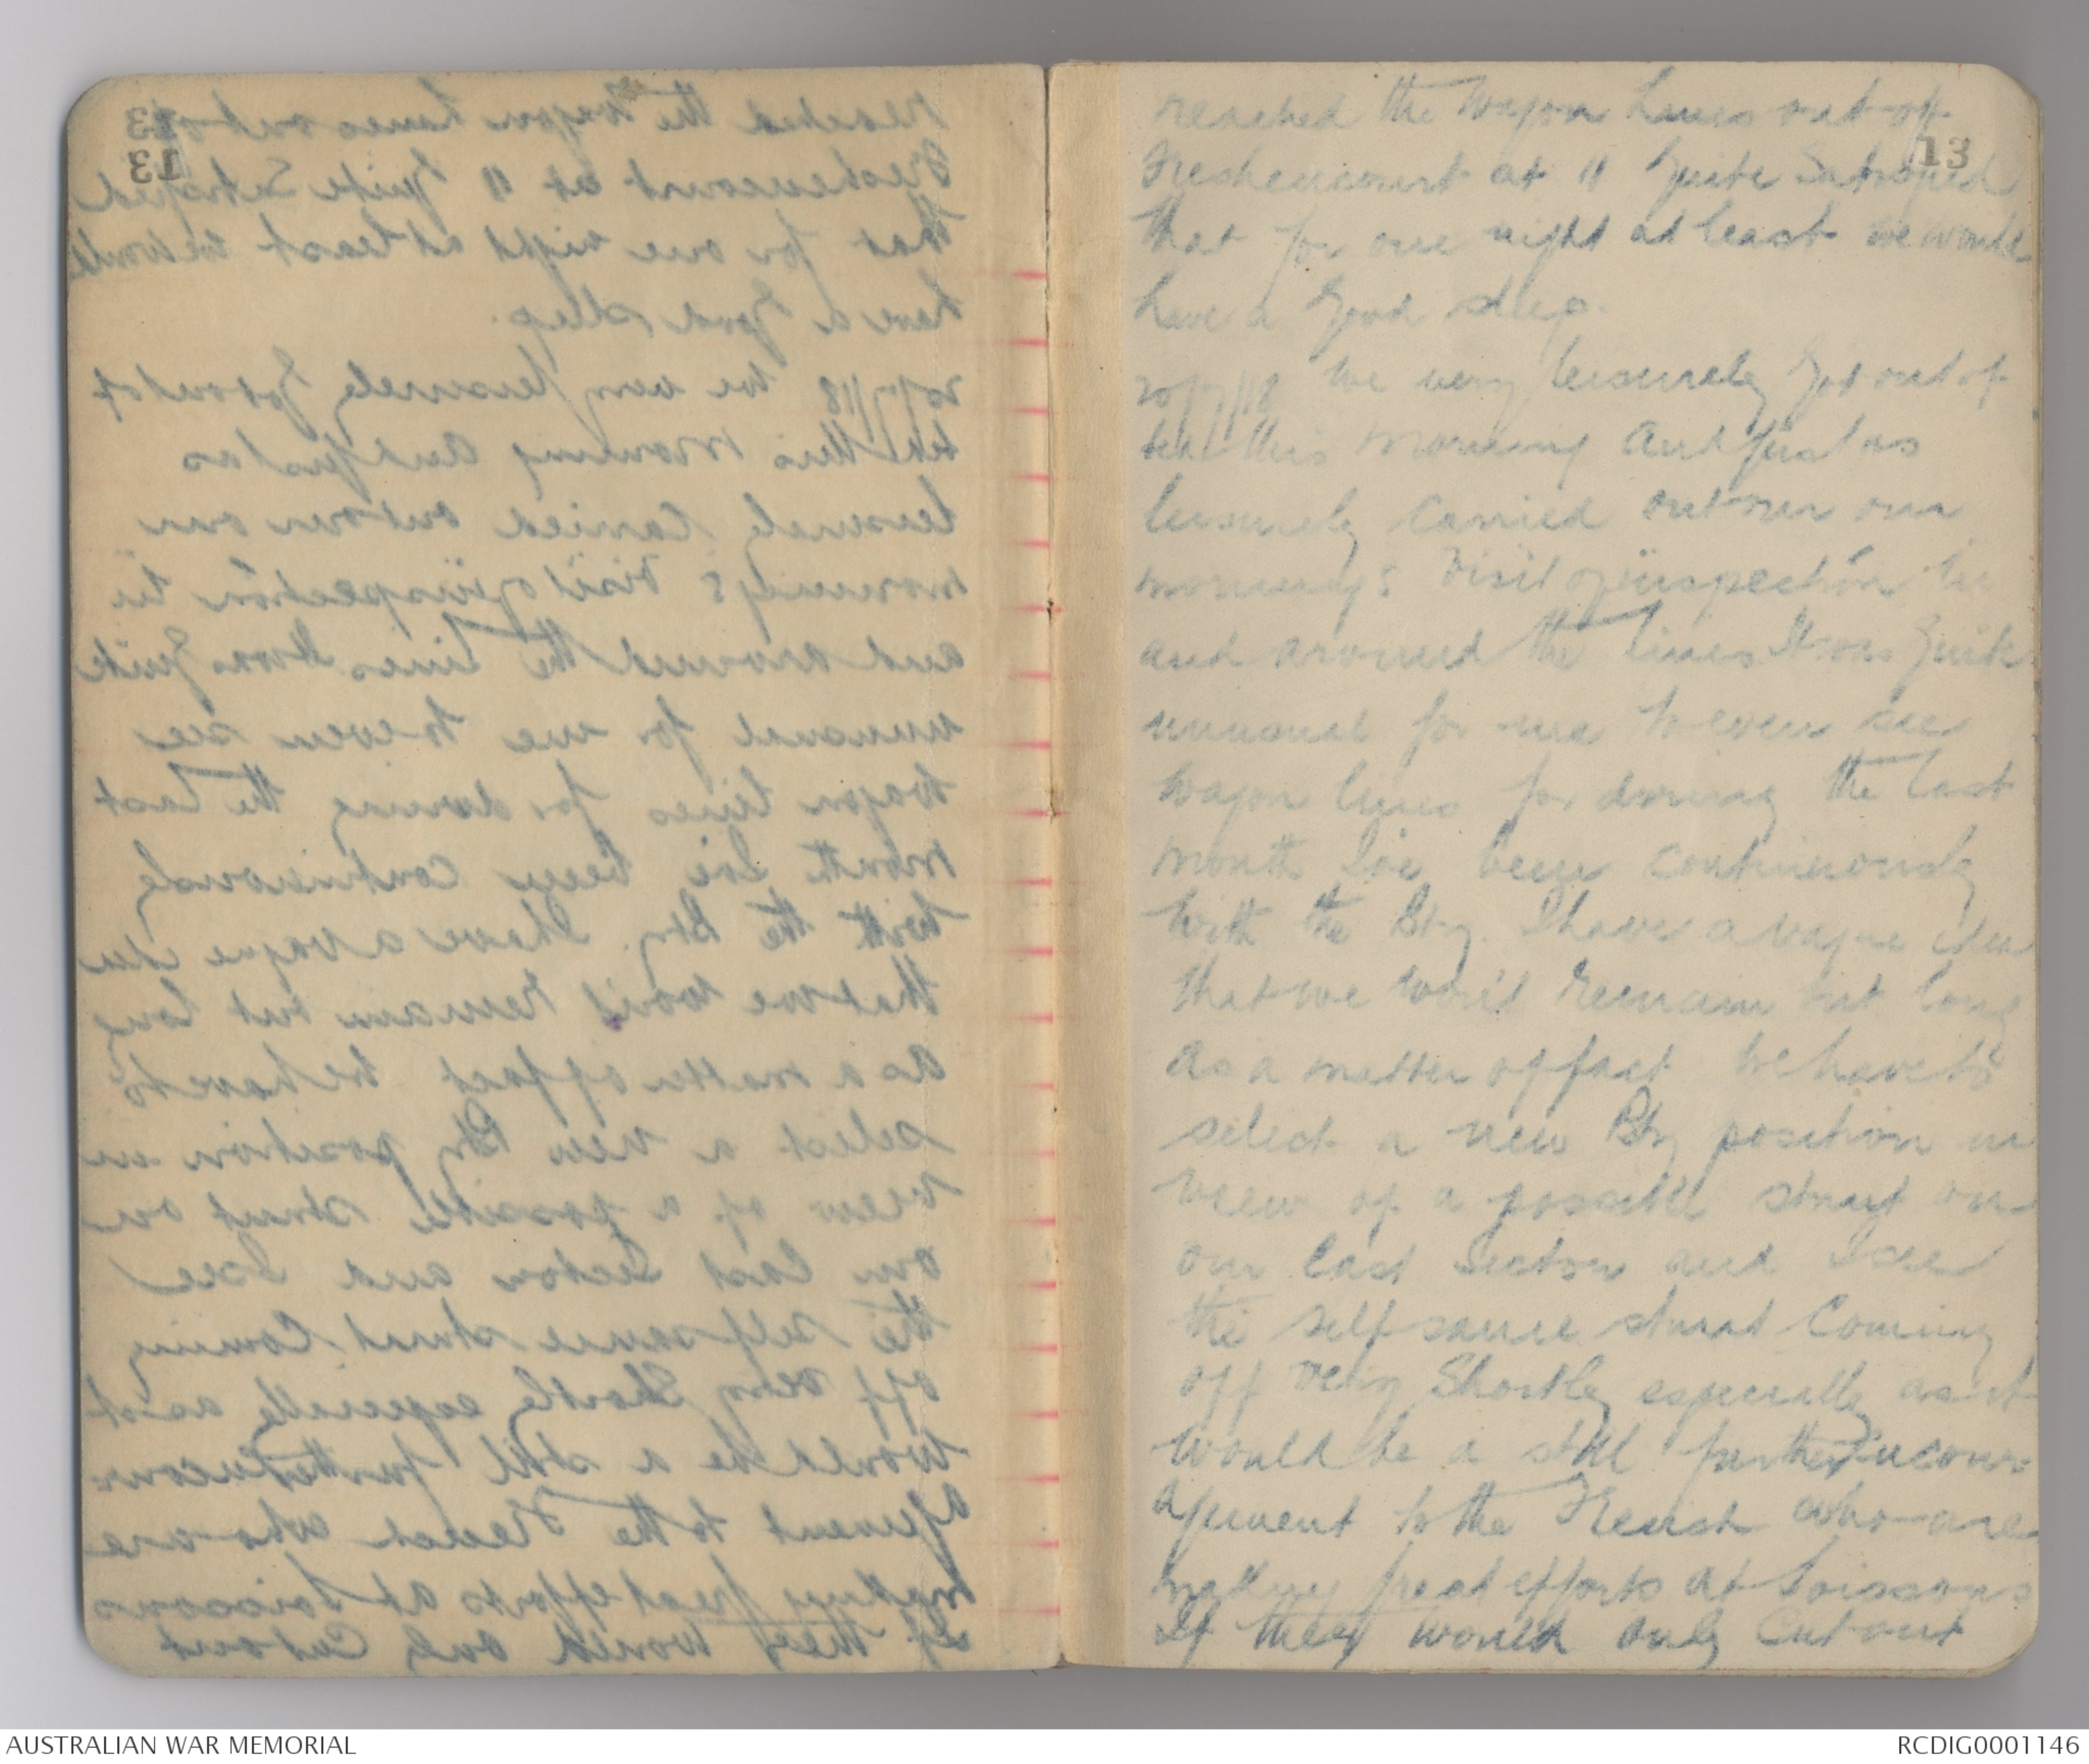 13
reached the Wagon Lines out of
Freshencourt at 11 Quite Satisfied
that for one night at least we would
have a good sleep.
20/7/18 We very leisurely got out of
bed this morning and just as
leisurely carried out our
morning's visit of inspection in
and around the lines It was quite
unusual for me to even see
wagon lines for during the last
month I've been continuously
with the Bty. I have a vague idea
that we won't remain but long
as a matter of fact we have to
select a new Bty position in
view of a possible stunt on
our last Sector and I see
the self same stunt coming
off very shortly especially as it
would be a still further encour-
agement to the French who are
making great efforts at Soissons
If they would only cut out
AUSTRALIAN WAR MEMORIAL
RCDIG0001146